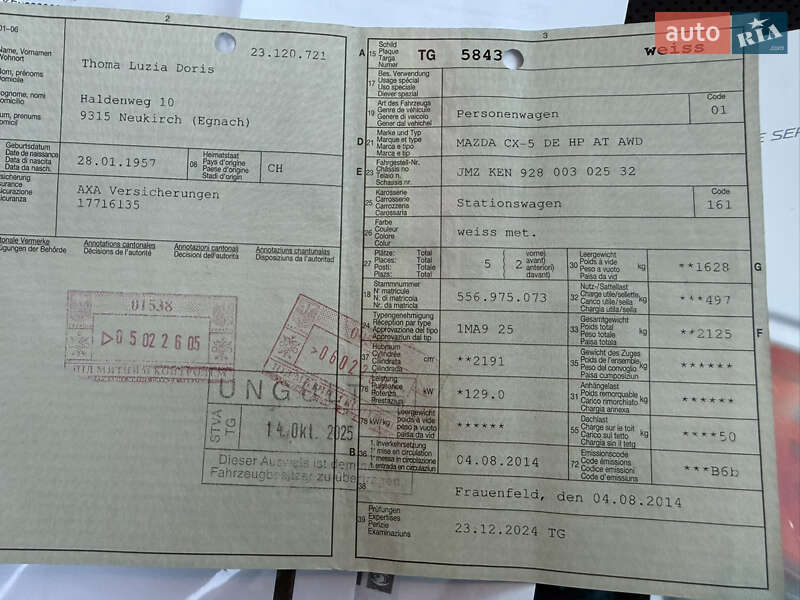 01-06
2
23.120.721
Name, Vornamen
Wohnort
Nom, prénoms
Domicile
Cognome, nomi
Domicilio
Num, prenums
Domicil
Thoma Luzia Doris
Haldenweg 10
9315 Neukirch (Egnach)
Geburtsdatum
Date de naissance
Data di nascita
Data da nasch.
28.01.1957
06
Heimatstaat
Pays d'origine
Paese d'origine
Stadi d'origin
CH
AXA Versicherungen
17716135
Annotations cantonales
Décisions de l'autorité
Annotazioni cantonali
Decisioni dell'autorità
Annotaziuns chantunalas
Disposiziuns da l'autoritad
01538
05022605
0602
UNG
STVA
TG
14. Okt. 2025
Dieser Ausweis ist dem
Fahrzeugbesitzer zu übertragen
3
A 15
Schild
Plaque
Targa
Numer
TG 5843
weiss
auto RIA .com
17
Bes. Verwendung
Usage spécial
Uso speciale
Diever spezial
19
Art des Fahrzeugs
Genre de véhicule
Genere di veicolo
Gener dal vehichel
Personenwagen
Code
01
D 21
Marke und Typ
Marque et type
Marca e tipo
Marca e tip
MAZDA CX-5 DE HP AT AWD
E 23
Fahrgestell-Nr.
Châssis no
Telaio n.
Schassis nr.
JMZ KEN 928 003 025 32
25
Karosserie
Carrosserie
Carrozzeria
Carossaria
Stationswagen
Code
161
26
Farbe
Couleur
Colore
Colur
weiss met.
27
Plätze: Total
Places: Total
Posti: Totale
Plazs: Total
5
2
vorne)
avant)
anteriori)
davant)
30
Leergewicht
Poids à vide
Peso a vuoto
Paisa da vid
kg
**1628
G
18
Stammnummer
N° matricule
N. di matricola
Nr. da matricla
556.975.073
32
Nutz-/Sattellast
Charge utile/sellette
Carico utile/sella
Chargia utila/sella
kg
***497
24
Typengenehmigung
Réception par type
Approvazione del tipo
Approvaziun dal tip
1MA9 25
33
Gesamtgewicht
Poids total
Peso totale
Paisa totala
kg
**2125
F
37
Hubraum
Cylindrée
Cilindrata
Cilindrada
cm³
**2191
35
Gewicht des Zuges
Poids de l'ensemble
Peso del convoglio
Paisa cumposiziun
kg
******
76
Leistung
Puissance
Potenza
Prestaziun
kW
*129.0
31
Anhängelast
Poids remorquable
Carico rimorchiato
Chargia annexa
kg
******
78 kW/kg
Leergewicht
poids à vide
peso a vuoto
paisa da vid
******
55
Dachlast
Charge sur le toit
Carico sul tetto
Chargia sin il tetg
kg
****50
B 36
1. Inverkehrsetzung
1re mise en circulation
1a messa in circolazione
1. entrada en circulaziun
04.08.2014
72
Emissionscode
Code émissions
Codice emissioni
Code d'emissiuns
***B6b
38
Frauenfeld, den 04.08.2014
39
Prüfungen
Expertises
Perizie
Examinaziuns
23.12.2024 TG